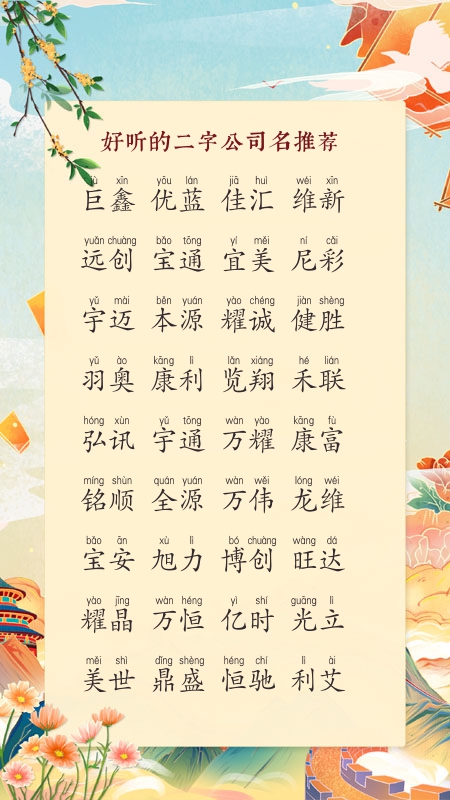 好听的二字公司名推荐
jù xīn yōu lán jiā huì wéi xīn
巨鑫 优蓝 佳汇 维新
yuǎn chuàng bǎo tōng yí měi ní cǎi
远创 宝通 宜美 尼彩
yǔ mài běn yuán yào chéng jiàn shèng
宇迈 本源 耀诚 健胜
yǔ ào kāng lì lǎn xiáng hé lián
羽奥 康利 览翔 禾联
hóng xùn yǔ tōng wàn yào kāng fù
弘讯 宇通 万耀 康富
míng shùn quán yuán wàn wěi lóng wéi
铭顺 全源 万伟 龙维
bǎo ān xù lì bó chuàng wàng dá
宝安 旭力 博创 旺达
yào jīng wàn héng yì shí guāng lì
耀晶 万恒 亿时 光立
měi shì dǐng shèng héng chí lì ài
美世 鼎盛 恒驰 利艾